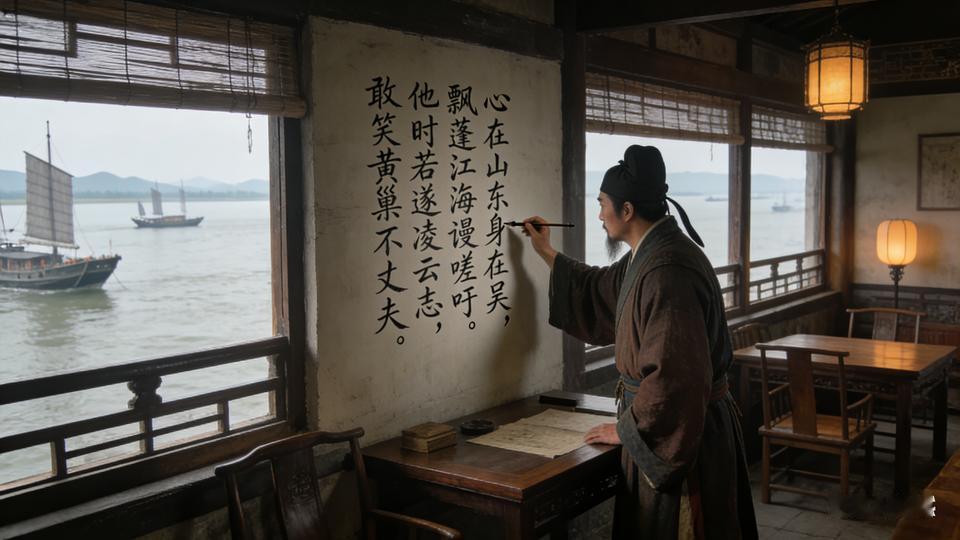 心在山东身在吴，
飘蓬江海谩嗟吁。
他时若遂凌云志，
敢笑黄巢不丈夫。